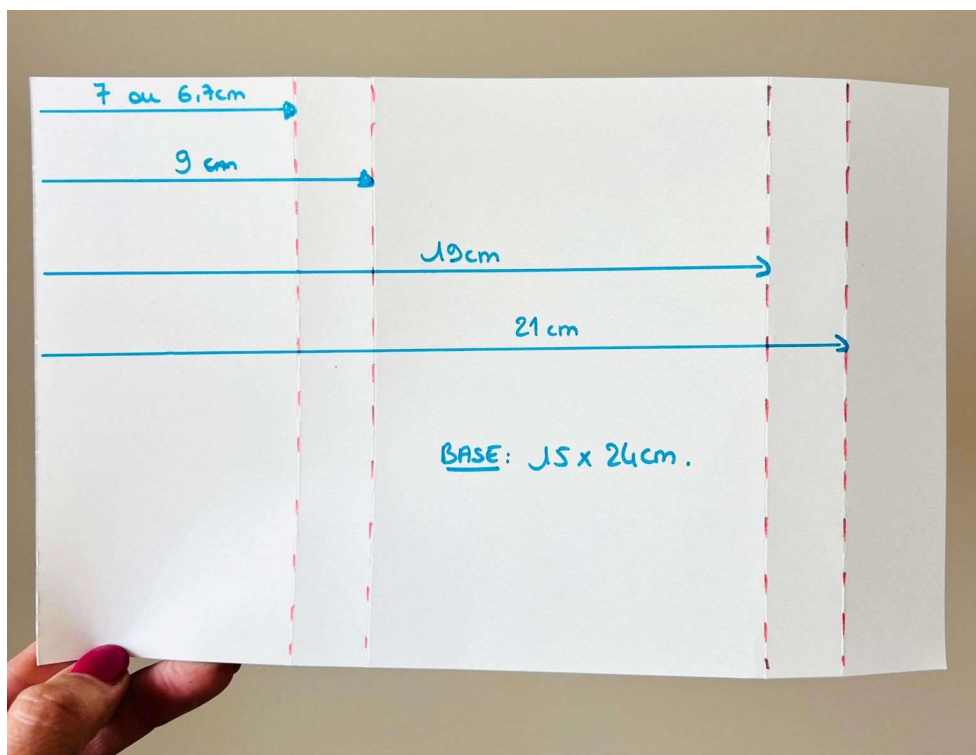 7 ou 6,7cm
9 cm
19cm
21 cm
BASE: 15 x 24cm.